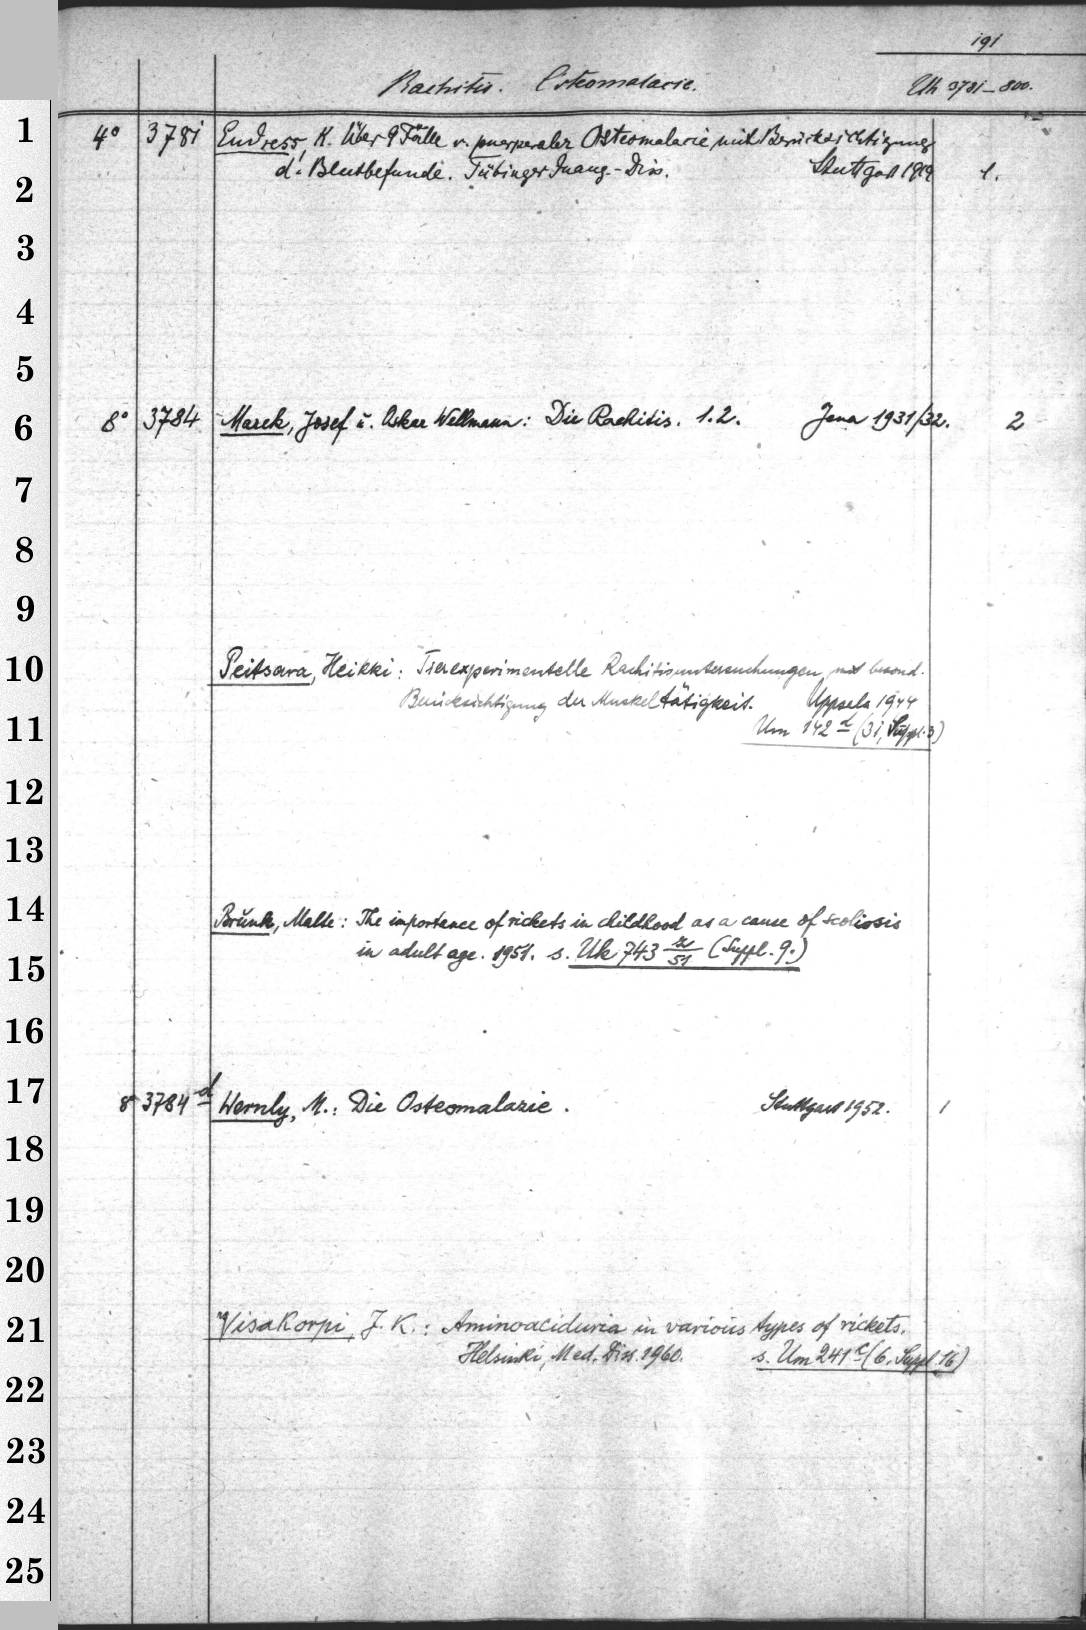 191
Rachitis. Osteomalacie. Uh 3781-800.
1
4° 3781 Endress, K. Über 9 Fälle v. puerperaler Osteomalacie, mit Berücksichtigung
2
d. Blutbefunde. Tübinger Inaug.-Diss. Stuttgart 1.
3
4
5
6
8° 3784 Marek, Josef u. Oskar Wellmann: Die Rachitis. 1.2. Jena 1931/32. 2
7
8
9
10
Peitsara, Heikki: Tierexperimentelle Rachitisuntersuchungen mit besond.
Berücksichtigung der Muskeltätigkeit. Uppsala 1944
11
Um 142 d (31, Suppl. 3)
12
13
14
Brunk, Malte: The importance of rickets in childhood as a cause of scoliosis
15
in adult age. 1951. s. Uk 743 /51 (Suppl. 9.)
16
17
8 3784 d Wernly, M.: Die Osteomalazie. Stuttgart 1952. 1
18
19
20
21
Visakorpi, J. K.: Aminoaciduria in various types of rickets.
22
Helsinki, Med. Diss. 1960. s. Um 241 c (6, Suppl. 16)
23
24
25